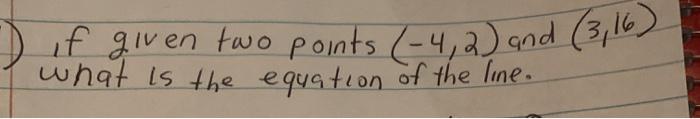 ) if given two points (-4,2) and (3,16)
what is the equation of the line.